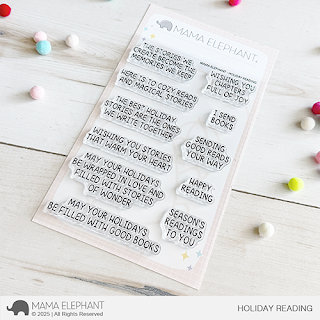 MAMA ELEPHANT.
MAMA ELEPHANT HOLIDAY READING
THE STORIES WE
CREATE BECOME THE
MEMORIES WE KEEP
HERE IS TO COZY READS
AND MAGICAL STORIES
THE BEST HOLIDAY
STORIES ARE THE ONES
WE WRITE TOGETHER
WISHING YOU STORIES
THAT WARM YOUR HEART
MAY YOUR HOLIDAYS
BE WRAPPED IN LOVE AND
FILLED WITH STORIES
OF WONDER
MAY YOUR HOLIDAYS
BE FILLED WITH GOOD BOOKS
WISHING YOU
CHAPTERS
FULL OF JOY
I SEND
BOOKS
SENDING
GOOD READS
YOUR WAY
HAPPY
READING
SEASON'S
READINGS
TO YOU
MAMA ELEPHANT
© 2025 | All Rights Reserved
HOLIDAY READING